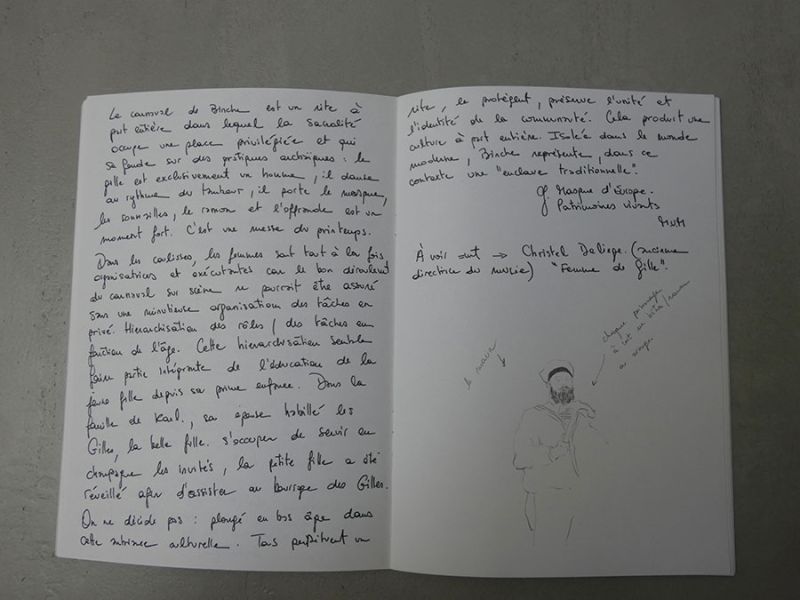 Le carnaval de Binche est un rite à
part entière dans lequel la sacralité
occupe une place privilégiée et qui
se fonde sur des pratiques archaïques : le
gille est exclusivement un homme, il danse
au rythme du tambour, il porte le masque,
les sonnailles, le ramon et l'offrande est un
moment fort. C'est une messe du printemps.
Dans les coulisses, les femmes sont tout à la fois
organisatrices et exécutantes car le bon déroulement
du carnaval sur scène ne pourrait être assuré
sans une minutieuse organisation des tâches en
privé. Hiérarchisation des rôles / des tâches en
fonction de l'âge. Cette hiérarchisation semble
faire partie intégrante de l'éducation de la
jeune fille depuis sa prime enfance. Dans la
famille de Karl, sa épouse habillé les
Gilles, la belle fille s'occuper de servir en
champagne les invités, la petite fille a été
réveillé afin d'assister au bourrage des Gilles.
On ne décide pas : plongé en bas âge dans
cette matrice culturelle. Tous perpétuent un
rite, le protègent, préserve l'unité et
l'identité de la communauté. Cela produit une
culture à part entière. Isolée dans le monde
moderne, Binche représente, dans ce
contexte une "enclave traditionnelle".
Masque d'Europe.
Patrimoines vivants
À voir → Christel Deliège. (ancienne
directrice du musée) "Femme de Gille".
chaque personnage
à
le marin